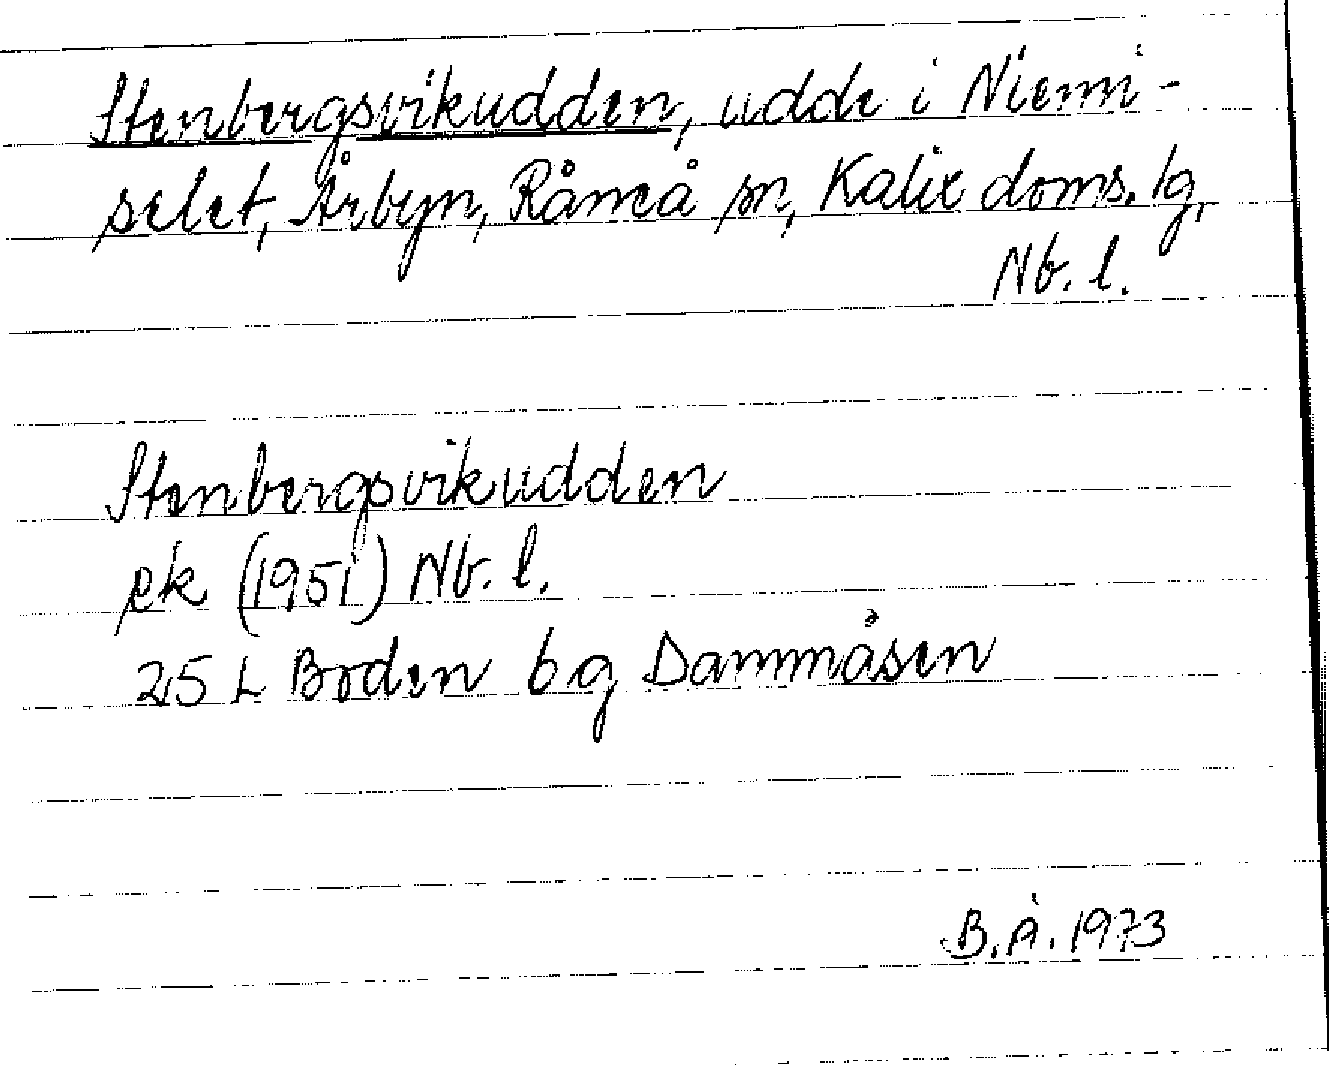 Stenbergsvikudden, udde i Niemi-
selet, Årbyn, Råneå sn, Kalix doms. lg,
Nb. l.
Stenbergsvikudden
ek (1951) Nb. l.
25 L Boden 6 g Dammåsen
B. Å. 1973